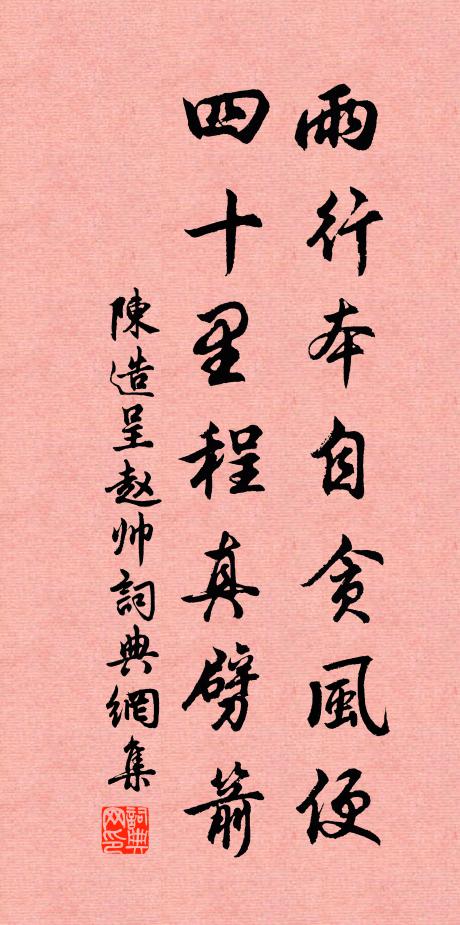 雨行本自贪風便
四十里程真劈箭
陳造呈赵帅詞典網集
詞典网印